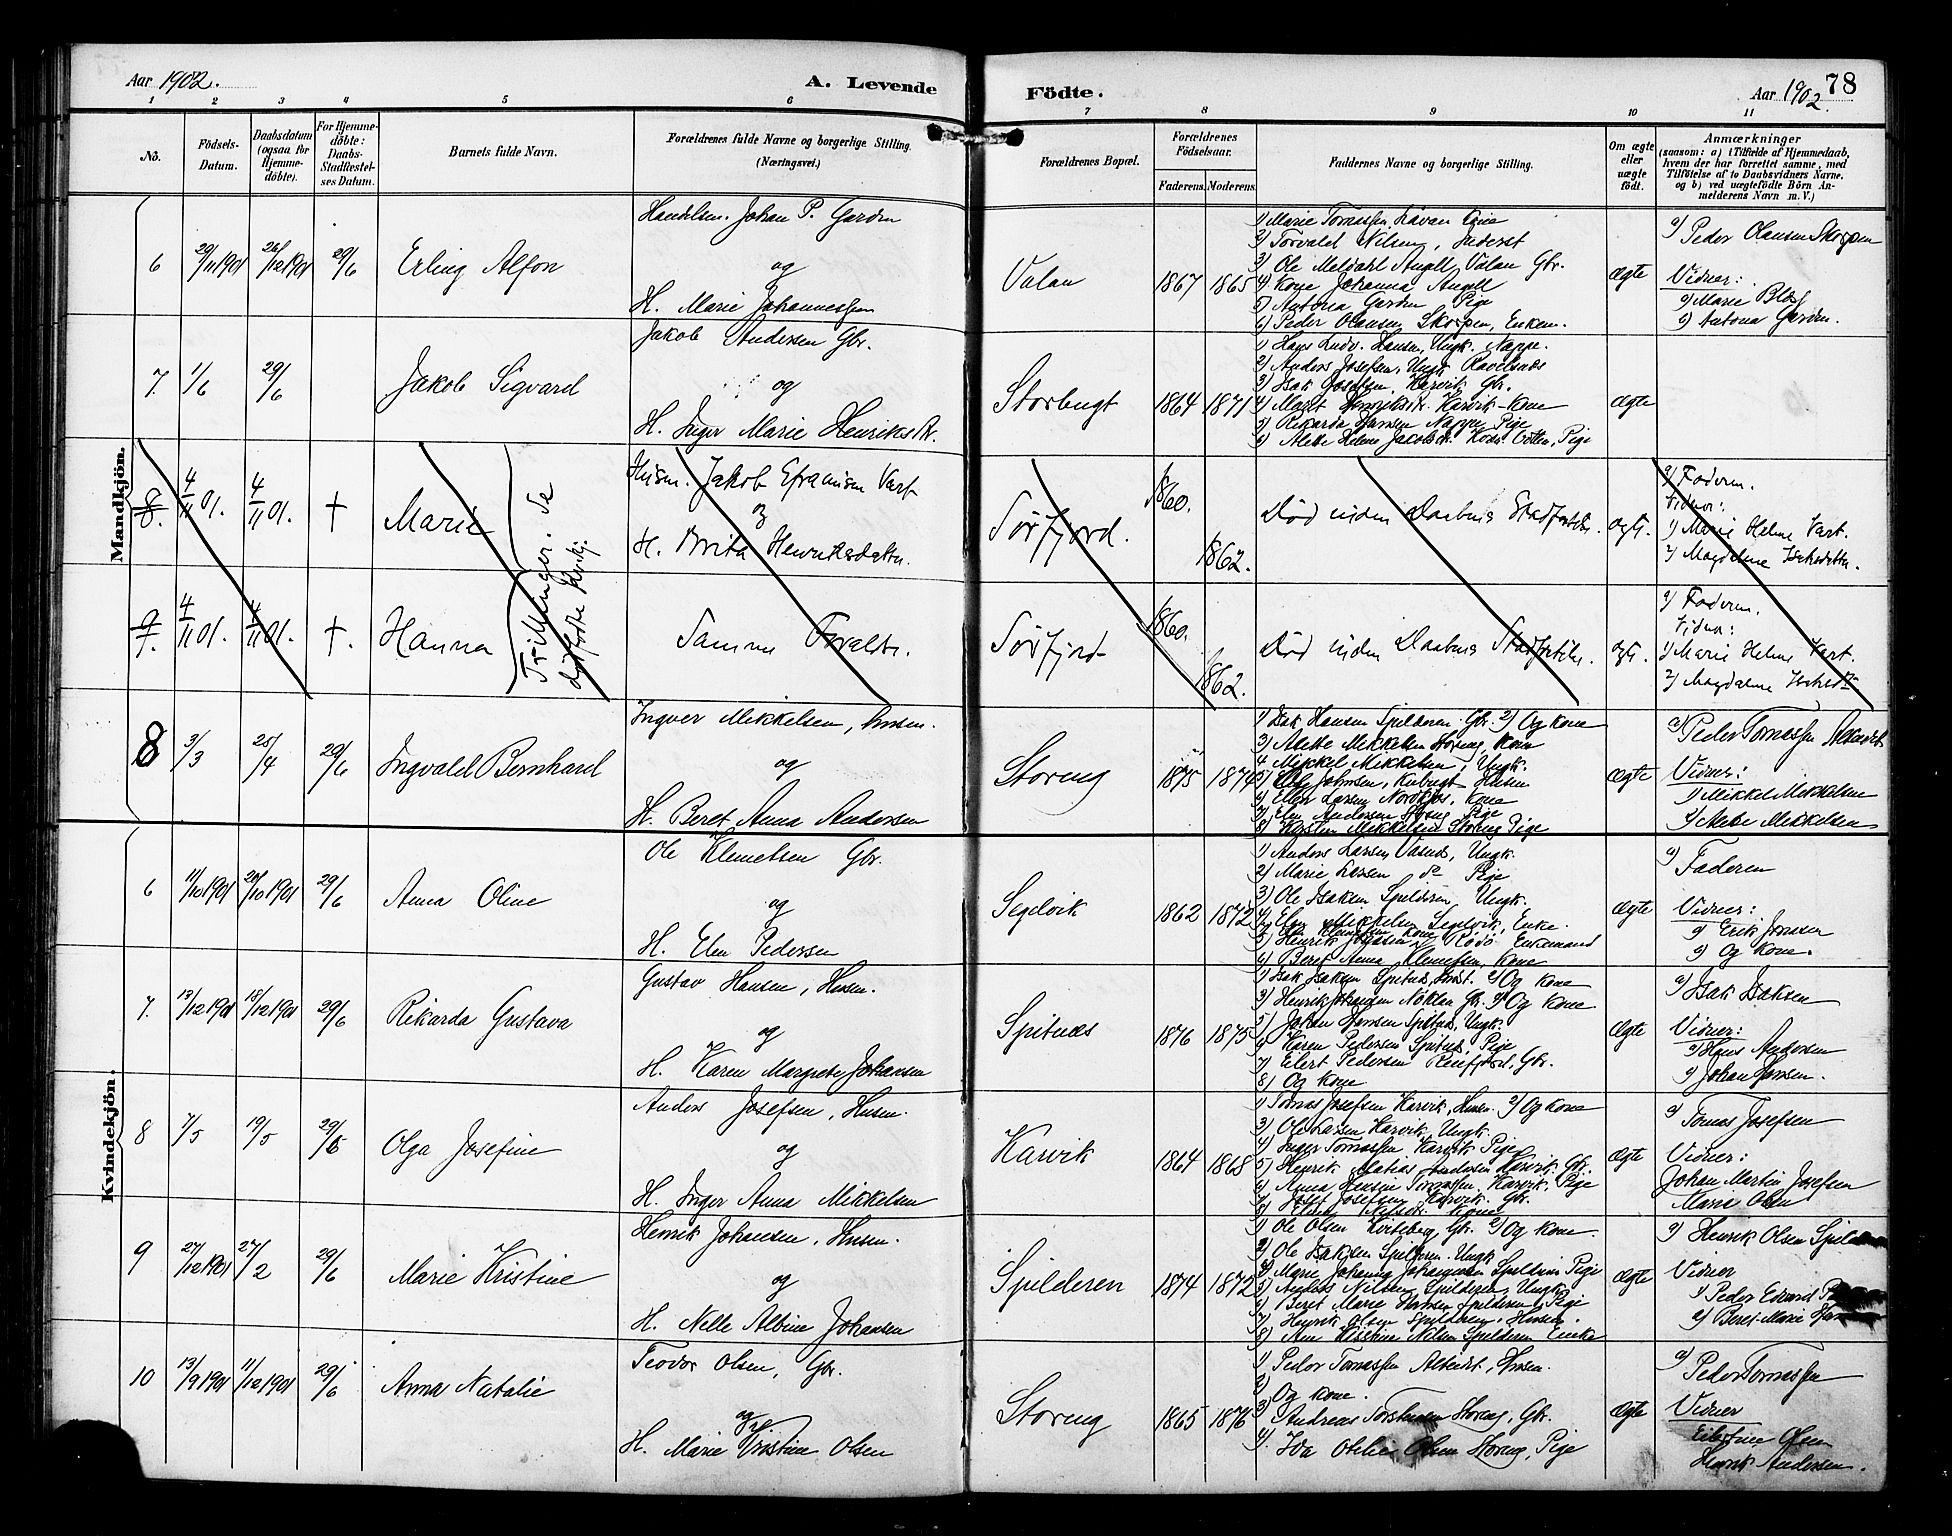 Aar 1902.
A. Levende
Födte.
Aar 1902.
78
1 2 3 4 5 6 7 8 9 10 11
No.
Födsels-Datum.
Daabsdatum (ogsaa for Hjemme-döbte).
For Hjemme-döbte: Daabs-Stadfæstel-ses Datum.
Barnets fulde Navn.
Forældrenes fulde Navne og borgerlige Stilling. (Næringsvei.)
Forældrenes Bopæl.
Forældrenes Födselsaar.
Faderens. Moderens.
Faddernes Navne og borgerlige Stilling.
Om ægte eller uægte födt.
Anmærkninger
(saasom: a) i Tilfælde af Hjemmedaab, hvem der har forrettet samme, med Tilföielse af to Daabsvidners Navne, og b) ved uægtefödte Börn An-melderens Navn m. V.)
Mandkjön.
6 29/11 1901 26/12 1901 29/6 Erling Alfon
Handelsm. Johan P. Garden
og
H. Marie Johannessen
Valan 1867 1865
1) Marie Tomassen Lavan Pige
2) Torvald Nilsen, Inderst
3) Ole Meldahl Angell Valan Gbr.
4) Kone Johanna Angell
5) Antona Garden Pige
6) Peder Olausen Skorpen, Enkem.
Ægte
a) Peder Olausen Skorpen
Vidner:
1) Marie
2) Antona Garden.
7. 1/6 29/6 Jakob Sigvard
Jakob Andersen Gbr.
og
H. Inger Marie Henriksdtr.
Storbugt 1864 1871
1) Hans Ludv. Hansen, Ungk. Nappe.
2) Anders Josefsen, Ungk. Ravelsnæs
3) Isak Josefsen, Karvik Gbr.
4) Maret Henriksdtr. Karvik - Kone
5) Rikarda Hansen Nappe, Pige
6) Alette Helene Jakobsdtr. Pige
Ægte
8. 4/11 01. 4/11 01. † Marie
Husm. Jakob Efraimsen Vart
og
H. Brita Henriksdatter.
Sörfjord. 1860. 1862.
Död inden Daabens Stadfæstelse.
ægte.
a) Faderen.
Vidner:
1) Marie Helene Vart.
2) Magdalene Isaksdatter.
Trillinger. Se dödfödte Kvindkj.
9. 4/11 01. 4/11 01. †. Hanna
Samme Forældre.
Sörfjord 1860. 1862.
Död inden Daabens Stadfæstelse.
ægte.
a) Faderen.
Vidner:
1) Marie Helene Vart.
2) Magdalene Isaksdtr
8 3/3 25/4 29/6 Ingvald Bernhard
Ingver Mikkelsen, Husm.
og
H. Beret Anna Andersen
Storeng 1875 1874
1) Isak Hansen Spilderen Gbr. 2) Og Kone
3) Alette Mikkelsen Storeng, Kone
4 Mikkel Mikkelsen, Ungk.
5) Ole Johnsen, Kubugt Husm
6) Ellen Larsen Nordkjos, Kone
7) Elen Andersen Storeng Pige
8) Kirsten Mikkelsen Storeng Pige
Ægte
a) Peder Tomassen
Vidner:
1) Mikkel Mikkelsen
2) Alette Mikkelsen
Kvindekjön.
6 11/10 1901 20/10 1901 29/6 Anna Oline
Ole Klemetsen Gbr.
og
H. Elen Pedersen
Segelvik 1862 1872
1) Anders Larsen Vasnes, Ungk.
2) Marie Larsen do Pige
3) Ole Isaksen Spilderen, Ungk.
4) Elen Mikkelsen Segelvik, Enke.
5) Henrik Rödö Enkemand
6) Beret Anna Klemetsen, Kone
Ægte
a) Faderen
Vidner:
1) Erik Jonssen
2) Og Kone.
7. 13/12 1901 18/12 1901 29/6 Rikarda Gustava
Gustav Hansen, Husm.
og
H. Karen Margrete Johansen
Spitnæs 1876 1875
1) Isak Isaksen Spitnæs, Inderst. 2) Og Kone
3) Henrik Johansen Nöklan Gbr. 4) Og Kone
5) Johan Hansen Spitnæs, Ungk.
6) Karen Pedersen Spitnæs, Pige
7) Eilert Pedersen Reinfjord, Gbr.
8) Og Kone
Ægte
a) Isak Isaksen
Vidner:
1) Hans Andersen
2) Johan Hansen.
8 7/5 19/5 29/6 Olga Josefine
Anders Josefsen, Husm.
og
H. Inger Anna Mikkelsen
Karvik 1864 1868
1) Tomas Josefsen Karvik, Husm. 2) Og Kone
3) Ole Larsen Karvik, Ungk.
4) Inger Tomassen Karvik Pige
5) Henrik Matias Andersen Karvik Gbr.
6) Anna Hansine Tomassen Karvik, Pige
7) Josef Josefsen Karvik Gbr.
8) Nilsdtr. Kone
Ægte
a) Tomas Josefsen
Vidner:
Johan Martin Josefsen
Marie Olsen
9 27/12 1901 27/2 29/6 Marie Kristine
Henrik Johansen, Husm.
og
H. Nelle Albine Johansen
Spilderen 1874 1872
1) Ole Olsen Kvitberg, Gbr. 2) Og Kone.
3) Ole Isaksen Spilderen Ungk
4) Marie Johannesen Spilderen Pige
5) Anders Nilsen Spilderen, Ungk
6) Beret Marie Hansen Spilderen, Pige
7) Henrik Olsen Spilderen, Husm.
8) Ane Kirstine Nilsen Spilderen Enke
Ægte
a) Henrik Olsen
Vidner
1) Peder Edvard
2) Beret Marie
10 13/9 1901 11/12 1901 29/6 Anna Natalie
Teodor Olsen, Gbr.
og
H. Marie Kristine Olsen
Storeng 1865 1876
1) Peder Tomassen Alteidet, Husm.
2) Og Kone.
3) Andreas Torstensen Storeng, Gbr.
4) Ida Otilie Olsen Storeng, Pige
Ægte
a) Peder Tomassen
Vidner
Eilertine Olsen
Henrik Andersen.